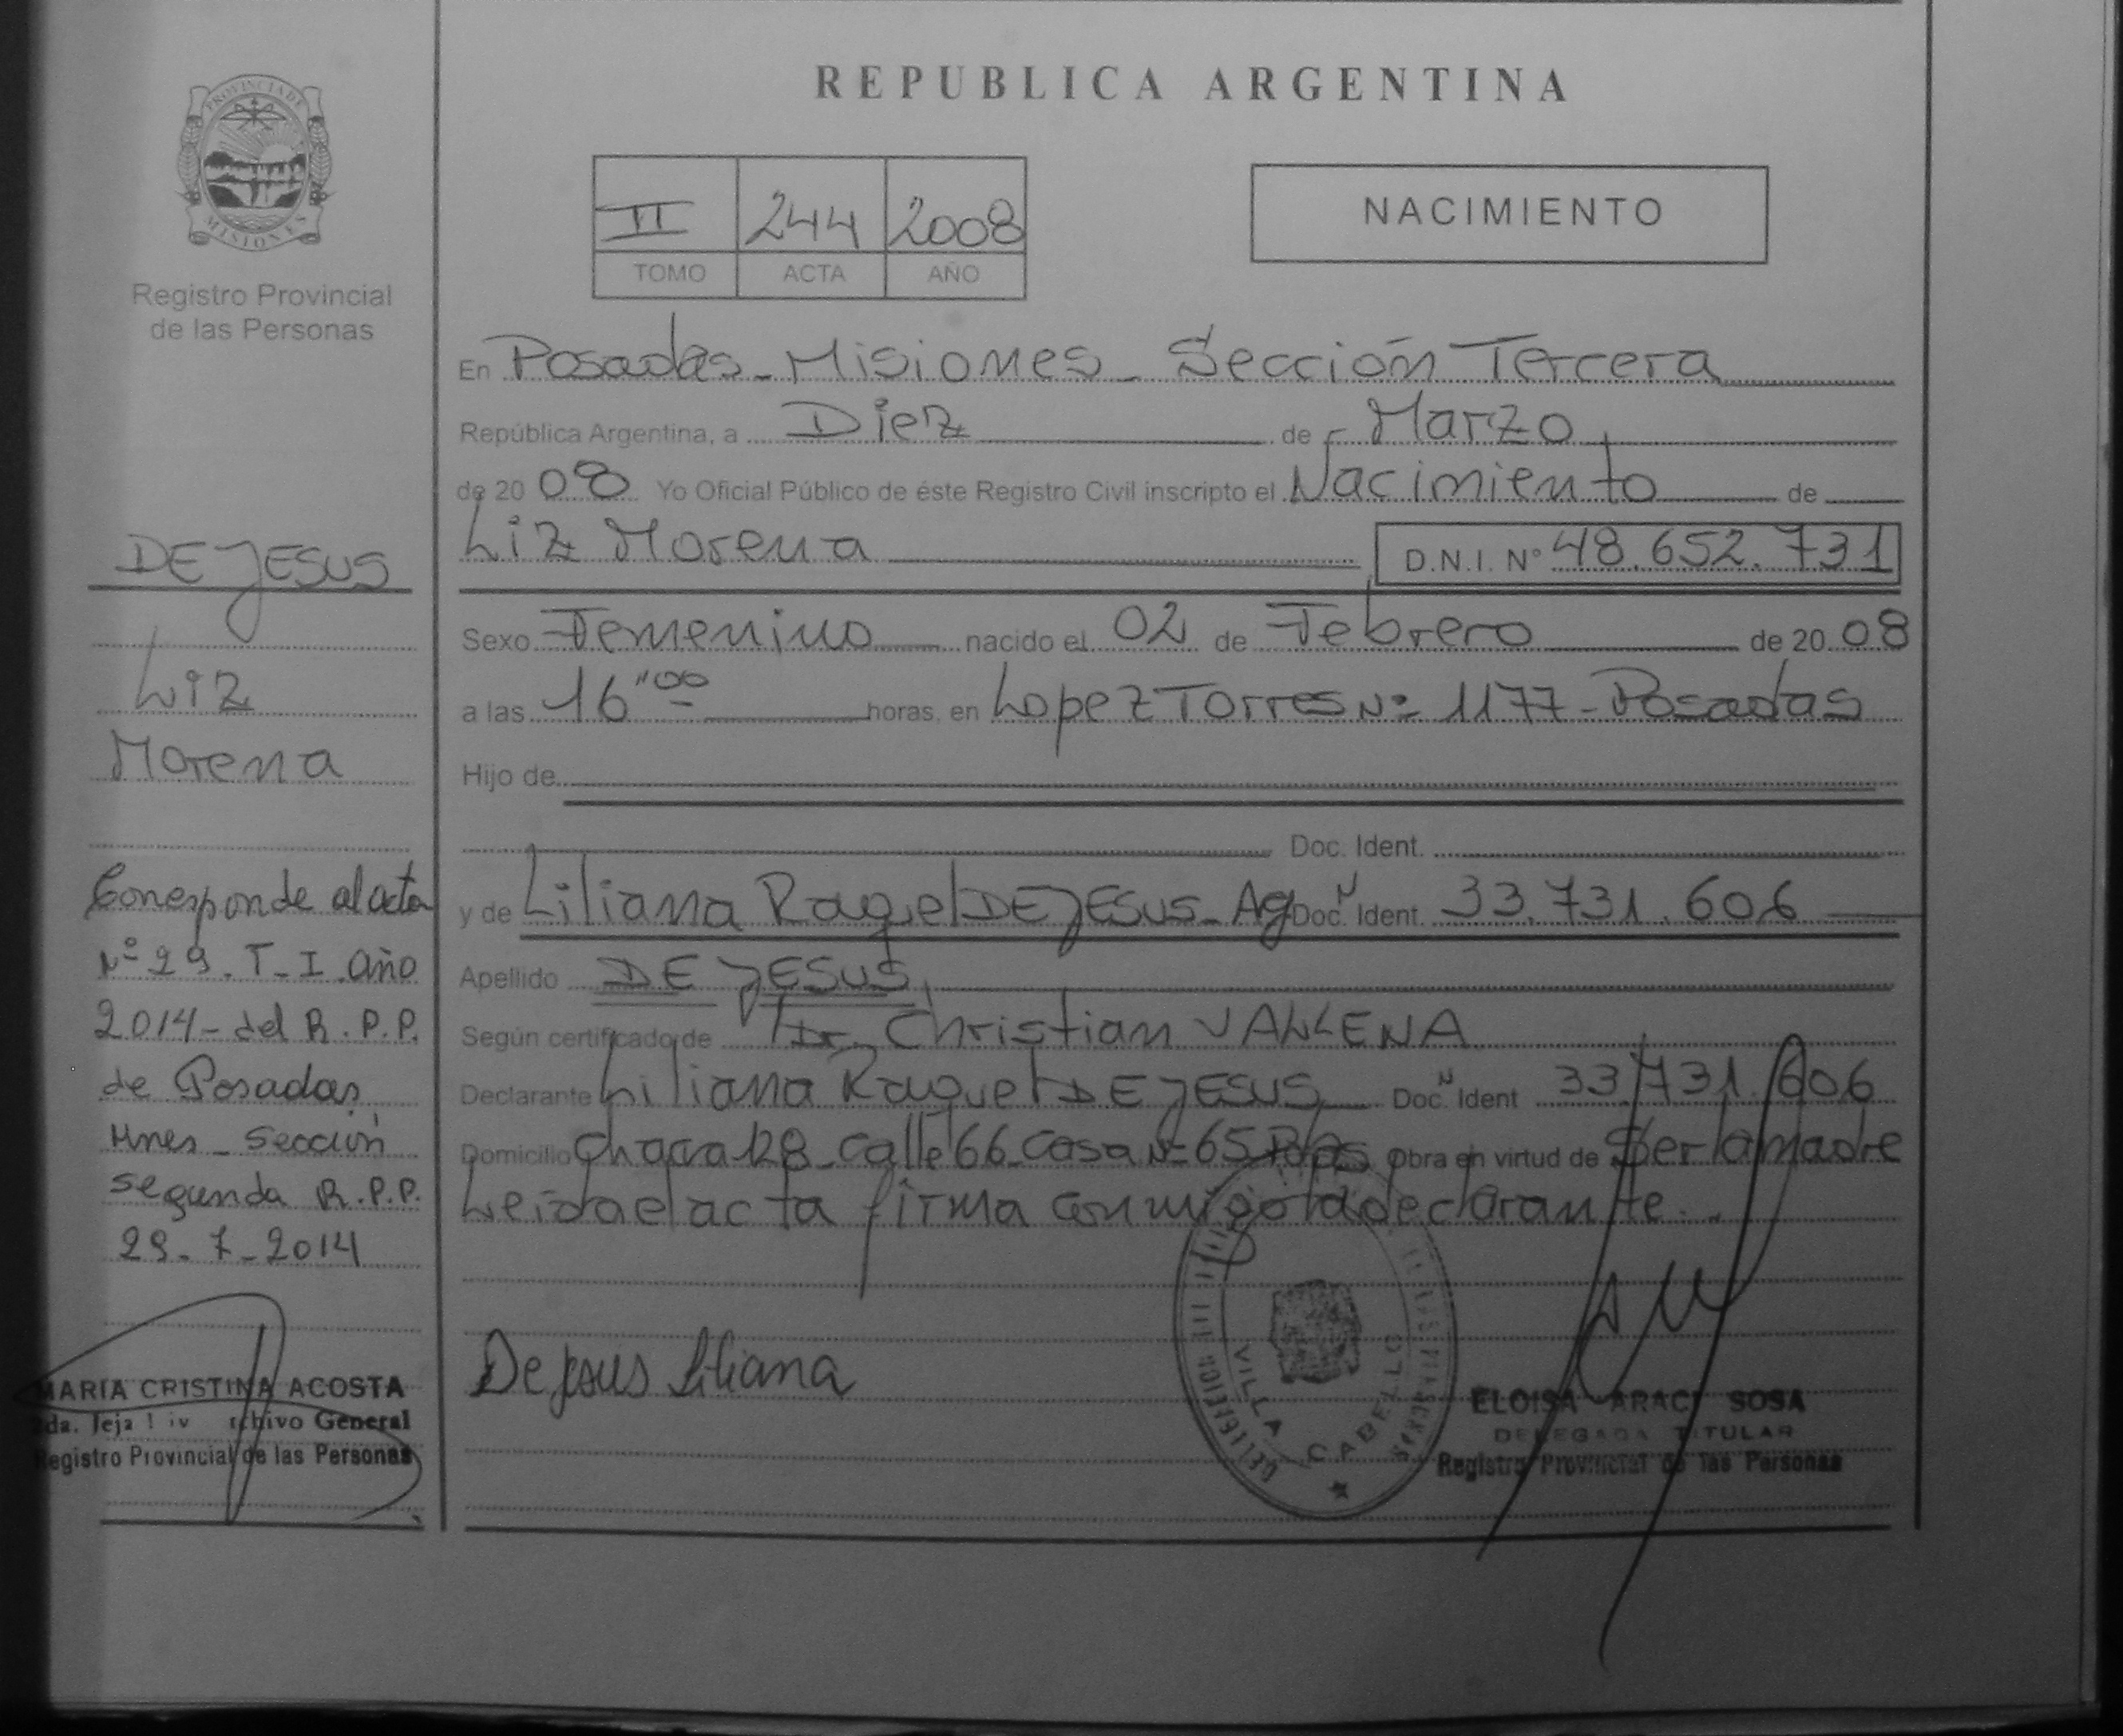 REPUBLICA ARGENTINA
PROVINCIA DE
MISIONES
Registro Provincial
de las Personas
II 244 2008
TOMO ACTA AÑO
NACIMIENTO
En Posadas - Misiones - Sección Tercera
República Argentina, a Diez de Marzo
de 2008 Yo Oficial Público de éste Registro Civil inscripto el Nacimiento de
Liz Morena D.N.I. Nº 48.652.731
Sexo Femenino nacido el 02 de Febrero de 2008
a las 16"00 horas, en Lopez Torres Nº 1177 - Posadas
Hijo de
Doc. Ident.
y de Liliana Raquel DE JESUS - Ag Doc. Ident. 33.731.606
Apellido DE JESUS
Según certificado de Dr. Christian VALLENA
Declarante Liliana Raquel DE JESUS Doc. Ident 33.731.606
Domicilio Chacra 128 - Calle 66 - Casa Nº 65 Pdas Obra en virtud de Ser la madre
Leida el acta firma conmigo la declarante.
De Jesus Liliana
VILLA CABELLO
ELOISA ARACI SOSA
DELEGADA TITULAR
Registro Provincial de las Personas
DE JESUS
Liz
Morena
Corresponde al acta
Nº 29. T-I. año
2014 - del R.P.P.
de Posadas
Mnes - Sección
Segunda R.P.P.
29-7-2014
MARIA CRISTINA ACOSTA
General
Registro Provincial de las Personas